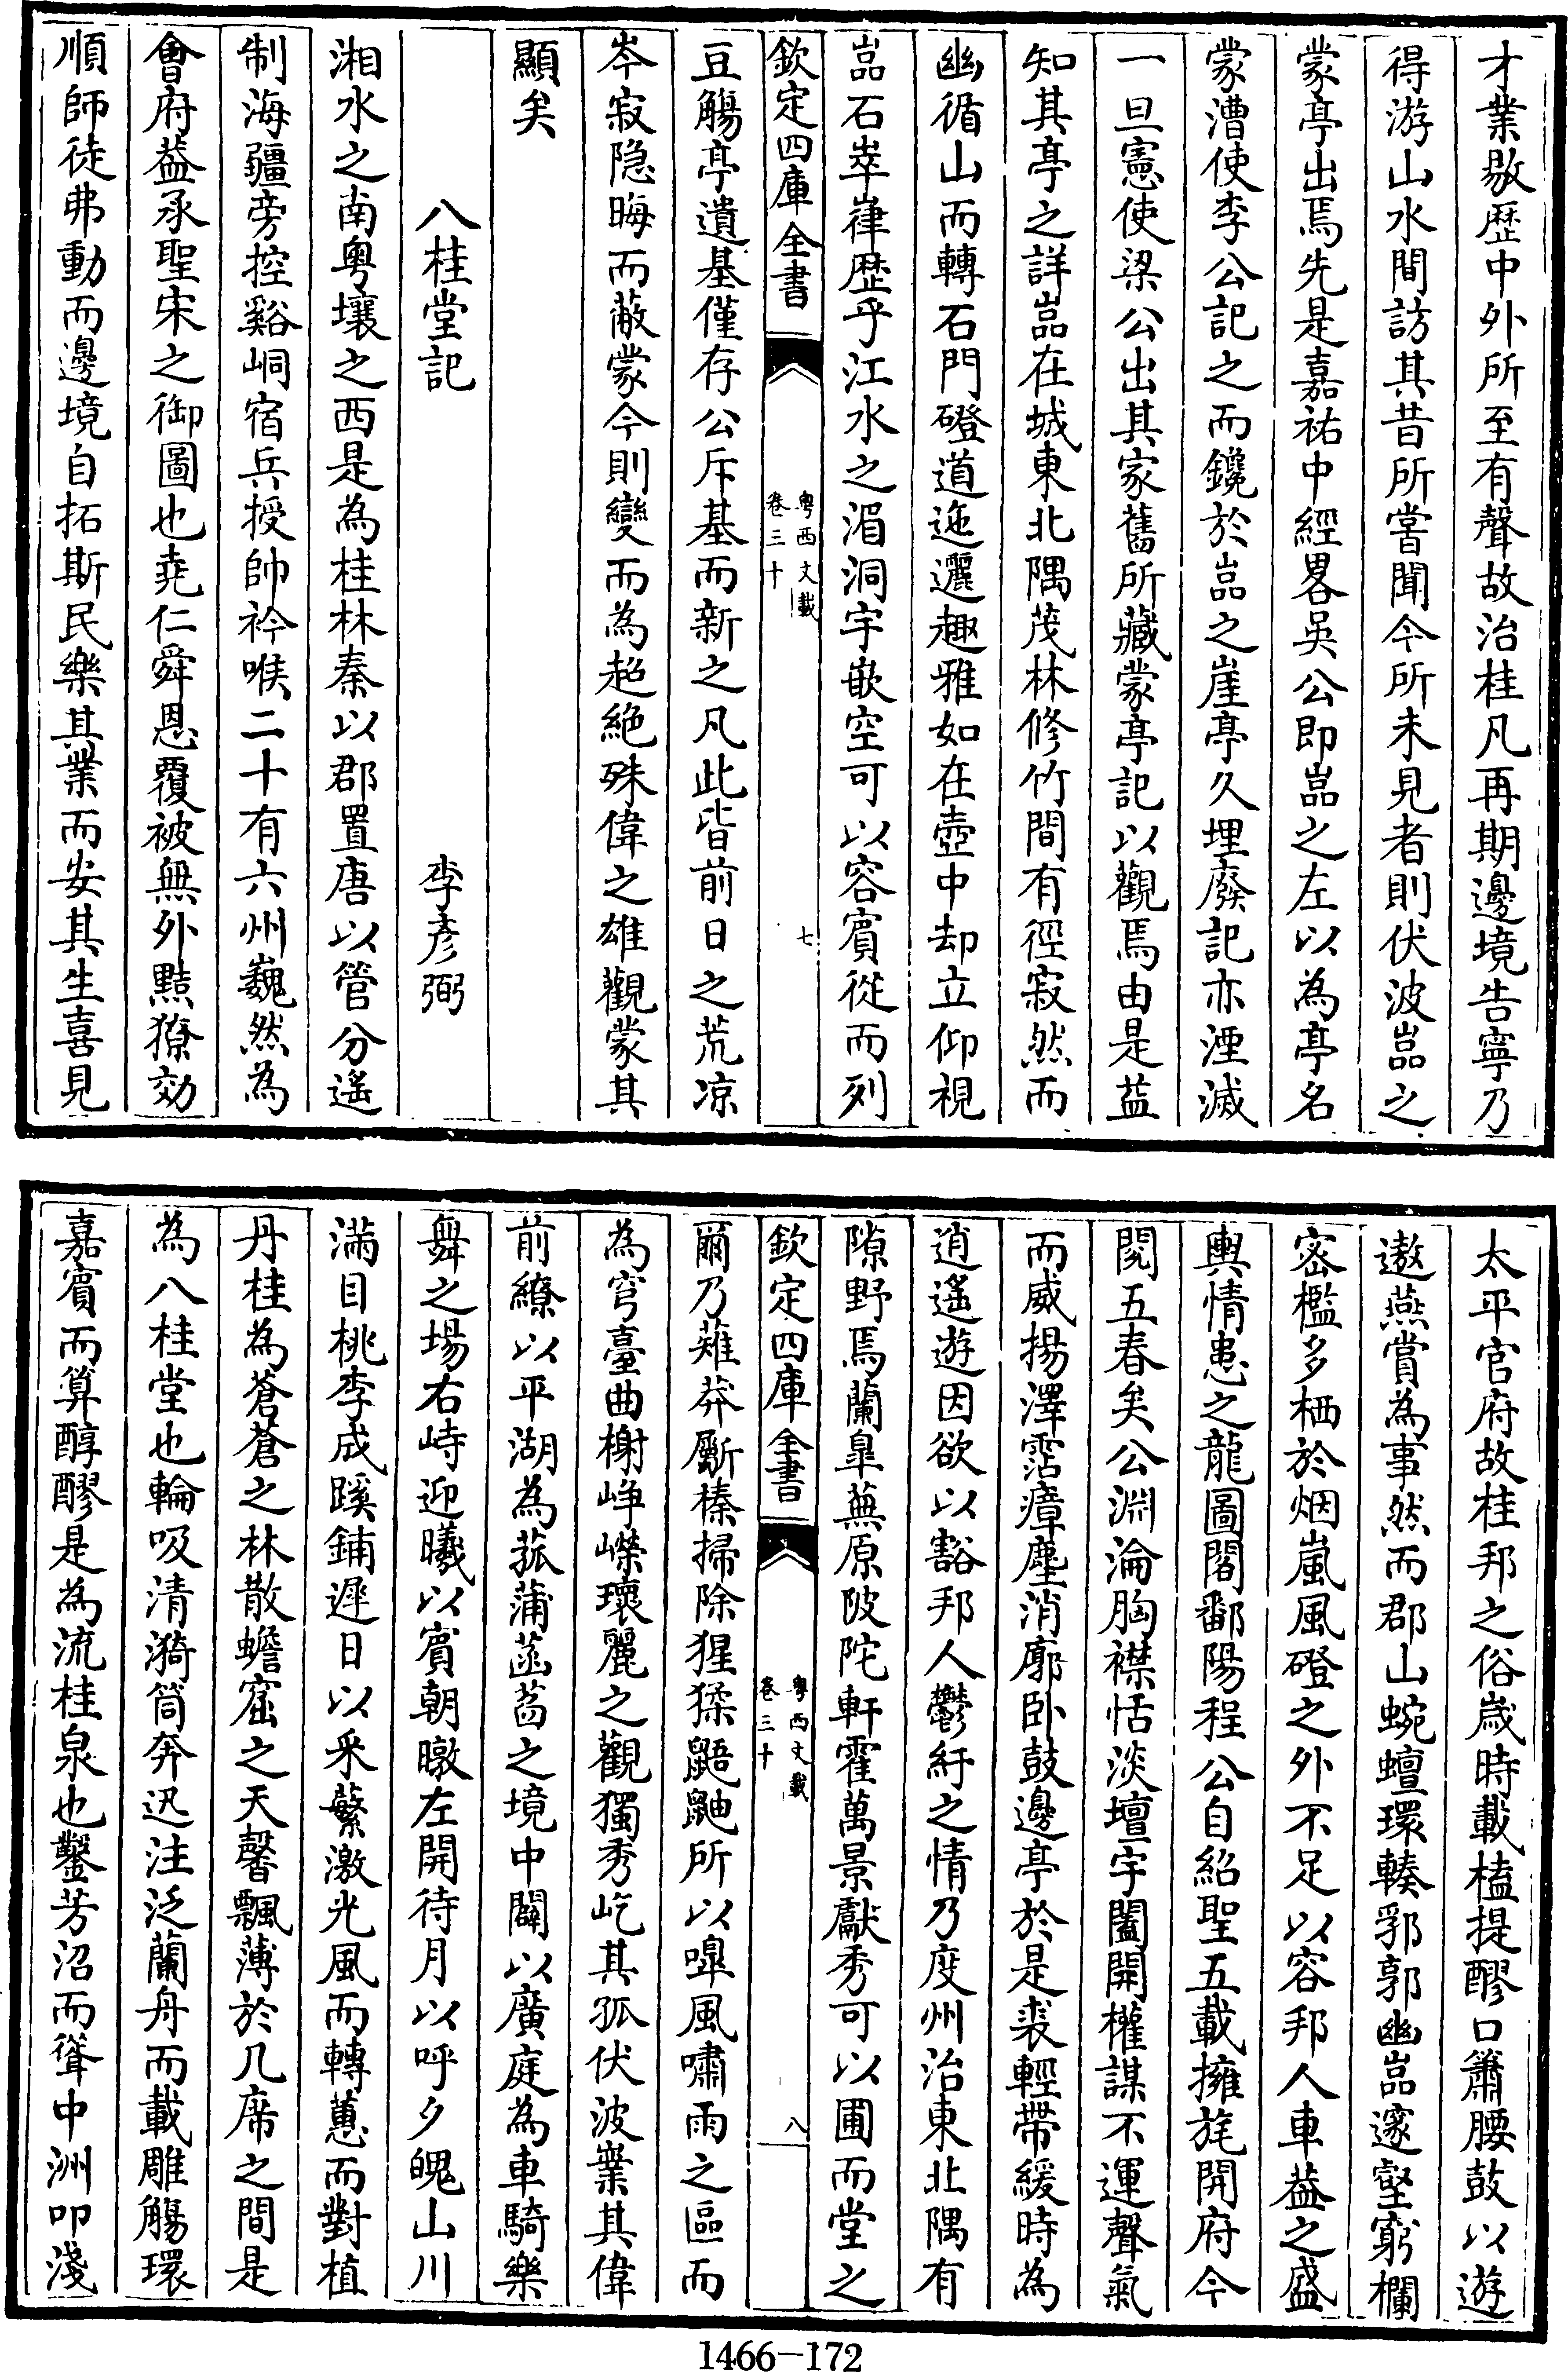 才業敭歴中外所至有聲故治桂凡再期邊境告寧乃
得游山水間訪其昔所嘗聞今所未見者則伏波嵓之
蒙亭出焉先是嘉祐中經畧吳公即嵓之左以為亭名
蒙漕使李公記之而鑱於嵓之崖亭久埋廢記亦湮滅
一旦憲使梁公出其家舊所藏蒙亭記以觀焉由是益
知其亭之詳嵓在城東北隅茂林修竹間有徑寂然而
幽循山而轉石門磴道迤邐趣雅如在壺中却立仰視
嵓石崒嵂歴乎江水之湄洞宇嵌空可以容賓從而列
欽定四庫全書
粤西文載
卷三十
七
豆觴亭遺基僅存公斥基而新之凡此皆前日之荒凉
岑寂隐晦而蔽蒙今則變而為超絶殊偉之雄觀蒙其
顯矣
八桂堂記
李彥弼
湘水之南粤壤之西是為桂林秦以郡置唐以管分遥
制海疆旁控谿峒宿兵授帥衿喉二十有六州巍然為
會府葢承聖宋之御圖也堯仁舜恩覆被無外黠獠効
順師徒弗動而邊境自拓斯民樂其業而安其生喜見
太平官府故桂邦之俗歳時載榼提醪口簫腰鼓以遊
遨燕賞為事然而郡山蜿蟺環輳郛郭幽嵓邃壑窮欄
密檻多栖於烟嵐風磴之外不足以容邦人車葢之盛
輿情患之龍圖閣鄱陽程公自紹聖五載擁旄開府今
閱五春矣公淵淪胸襟恬淡壇宇闔開權謀不運聲氣
而威揚澤霑瘴塵消廓卧鼓邊亭於是裘輕帶緩時為
逍遙遊因欲以豁邦人鬱紆之情乃度州治東北隅有
隙野焉蘭臯蕪原陂陀軒霍萬景獻秀可以圃而堂之
欽定四庫全書
粤西文載
卷三十
八
爾乃薙莽斸榛掃除猩猱鼯鼬所以嘷風嘯雨之區而
為穹臺曲榭崢嶸瓌麗之觀獨秀屹其孤伏波業其偉
前繚以平湖為菰蒲菡萏之境中闢以廣庭為車騎樂
舞之場右峙迎曦以賓朝暾左開待月以呼夕魄山川
滿目桃李成蹊鋪遲日以采蘩激光風而轉蕙而對植
丹桂為蒼蒼之林散蟾窟之天馨飄薄於几席之間是
為八桂堂也輪吸清漪筒奔迅注泛蘭舟而載雕觴環
嘉賓而算醇醪是為流桂泉也鑿芳沼而聳中洲叩淺
1466-172